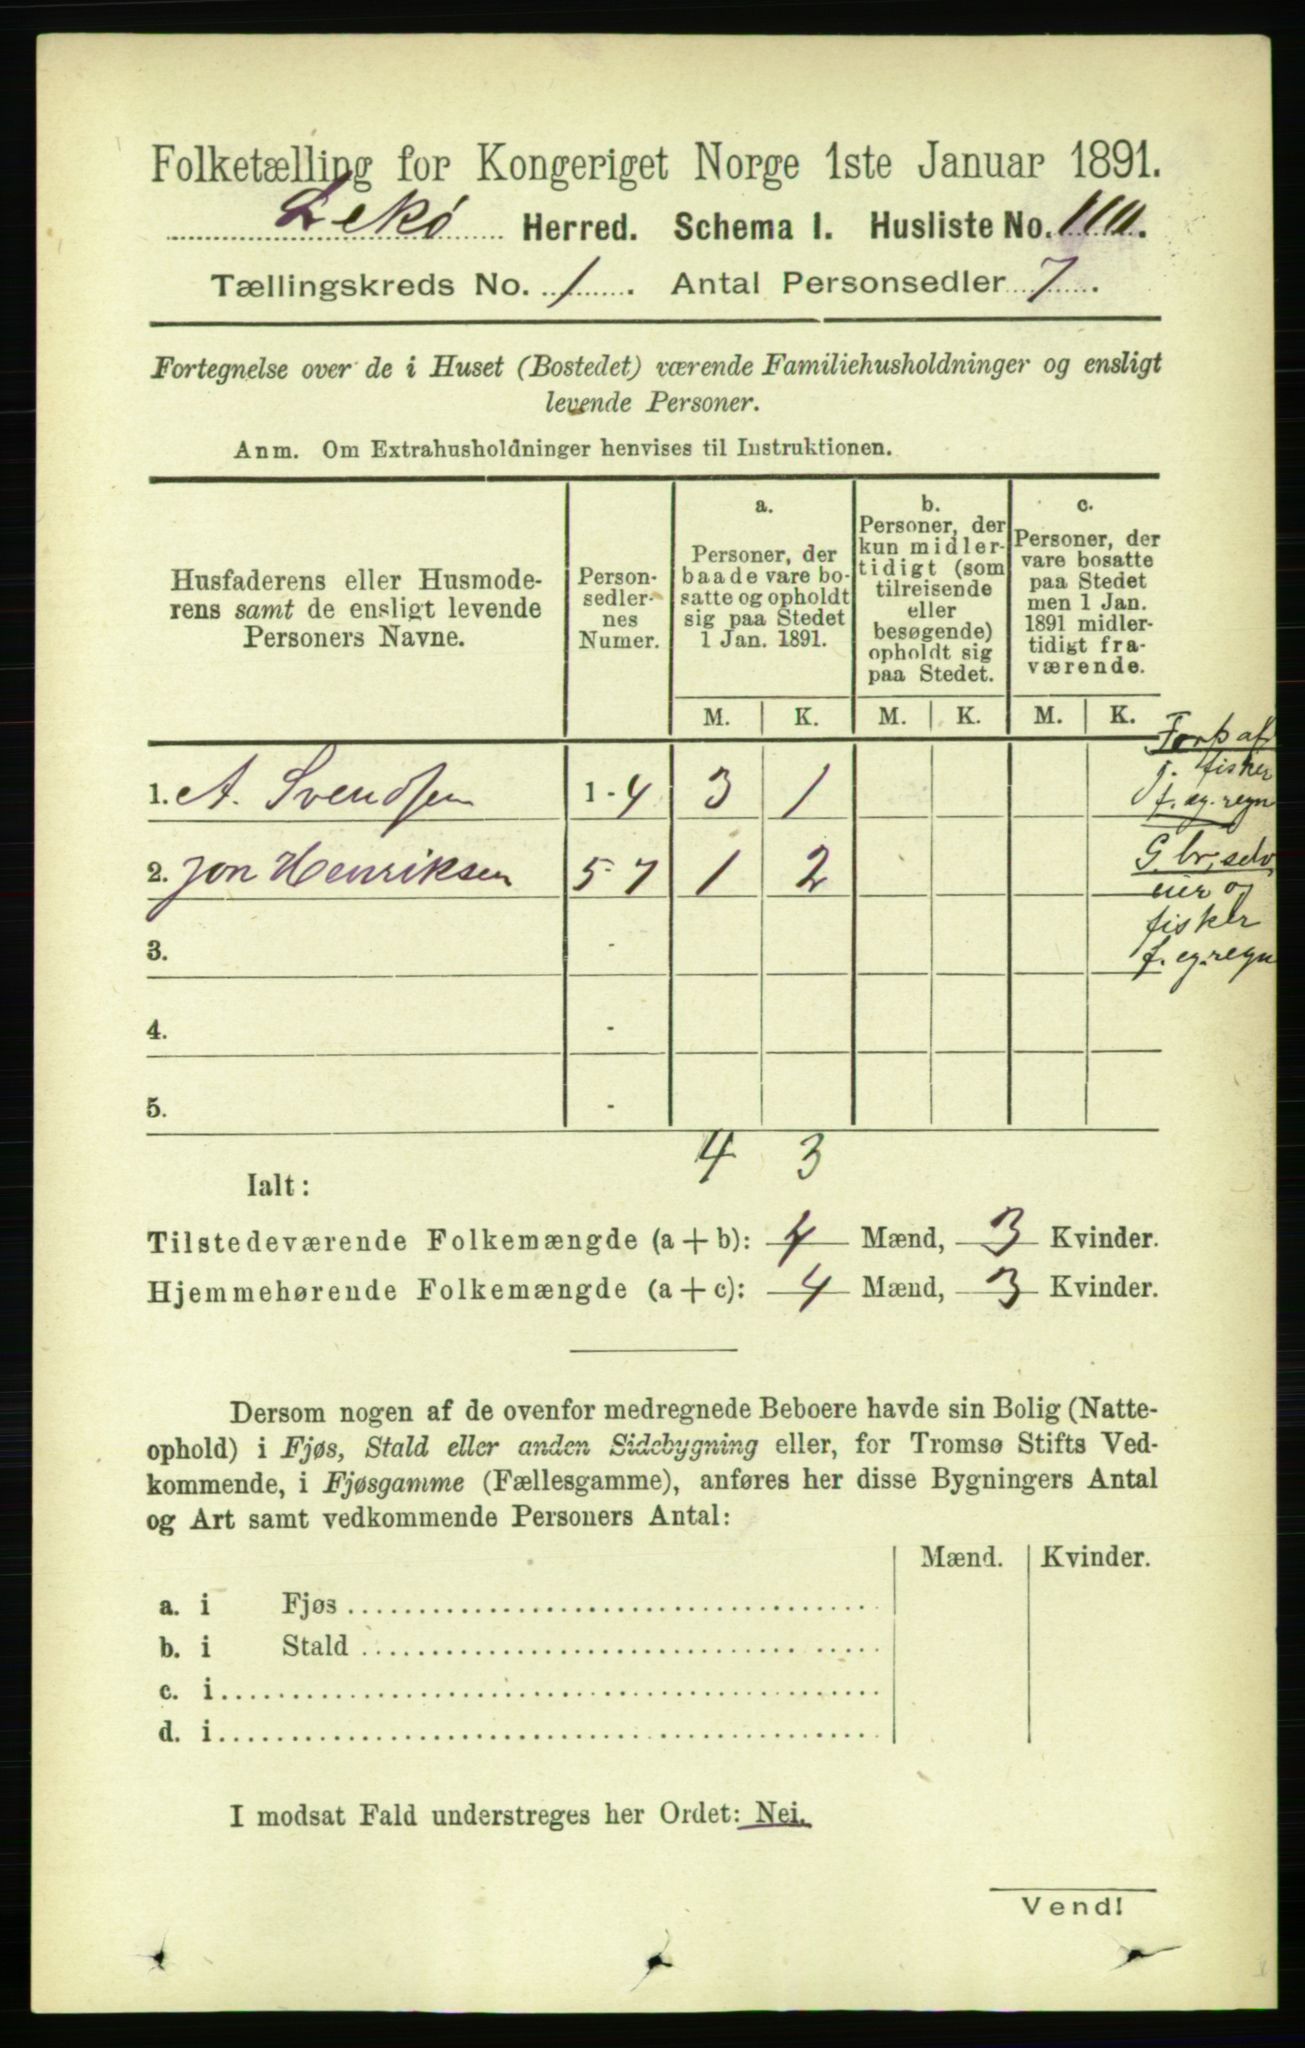 Folketælling for Kongeriget Norge 1ste Januar 1891.
Lekø Herred. Schema I. Husliste No.
Tællingskreds No. 1. Antal Personsedler 7.
Fortegnelse over de i Huset (Bostedet) værende Familiehusholdninger og ensligt
levende Personer.
Anm. Om Extrahusholdninger henvises til Instruktionen.
Husfaderens eller Husmode-
rens samt de ensligt levende
Personers Navne.
Person-
sedler-
nes
Numer.
a.
Personer, der
baade vare bo-
satte og opholdt
sig paa Stedet
1 Jan. 1891.
b.
Personer, der
kun midler-
tidigt (som
tilreisende
eller
besøgende)
opholdt sig
paa Stedet.
c.
Personer, der
vare bosatte
paa Stedet
men 1 Jan.
1891 midler-
tidigt fra-
værende.
M. K. M. K. M. K.
1. A. Svendsen 1-4 3 1
af
j. fisker
f. eg. regn
2. Jon Henriksen 5-7 1 2
G.br., selv
eier og
fisker
f. eg. regn
3. -
4. -
5. -
4 3
Ialt:
Tilstedeværende Folkemængde (a + b): 4 Mænd, 3 Kvinder.
Hjemmehørende Folkemængde (a + c): 4 Mænd, 3 Kvinder.
Dersom nogen af de ovenfor medregnede Beboere havde sin Bolig (Natte-
ophold) i Fjøs, Stald eller anden Sidebygning eller, for Tromsø Stifts Ved-
kommende, i Fjøsgamme (Fællesgamme), anføres her disse Bygningers Antal
og Art samt vedkommende Personers Antal:
Mænd. Kvinder.
a. i Fjøs
b. i Stald
c. i
d. i
I modsat Fald understreges her Ordet: Nei.
Vend!